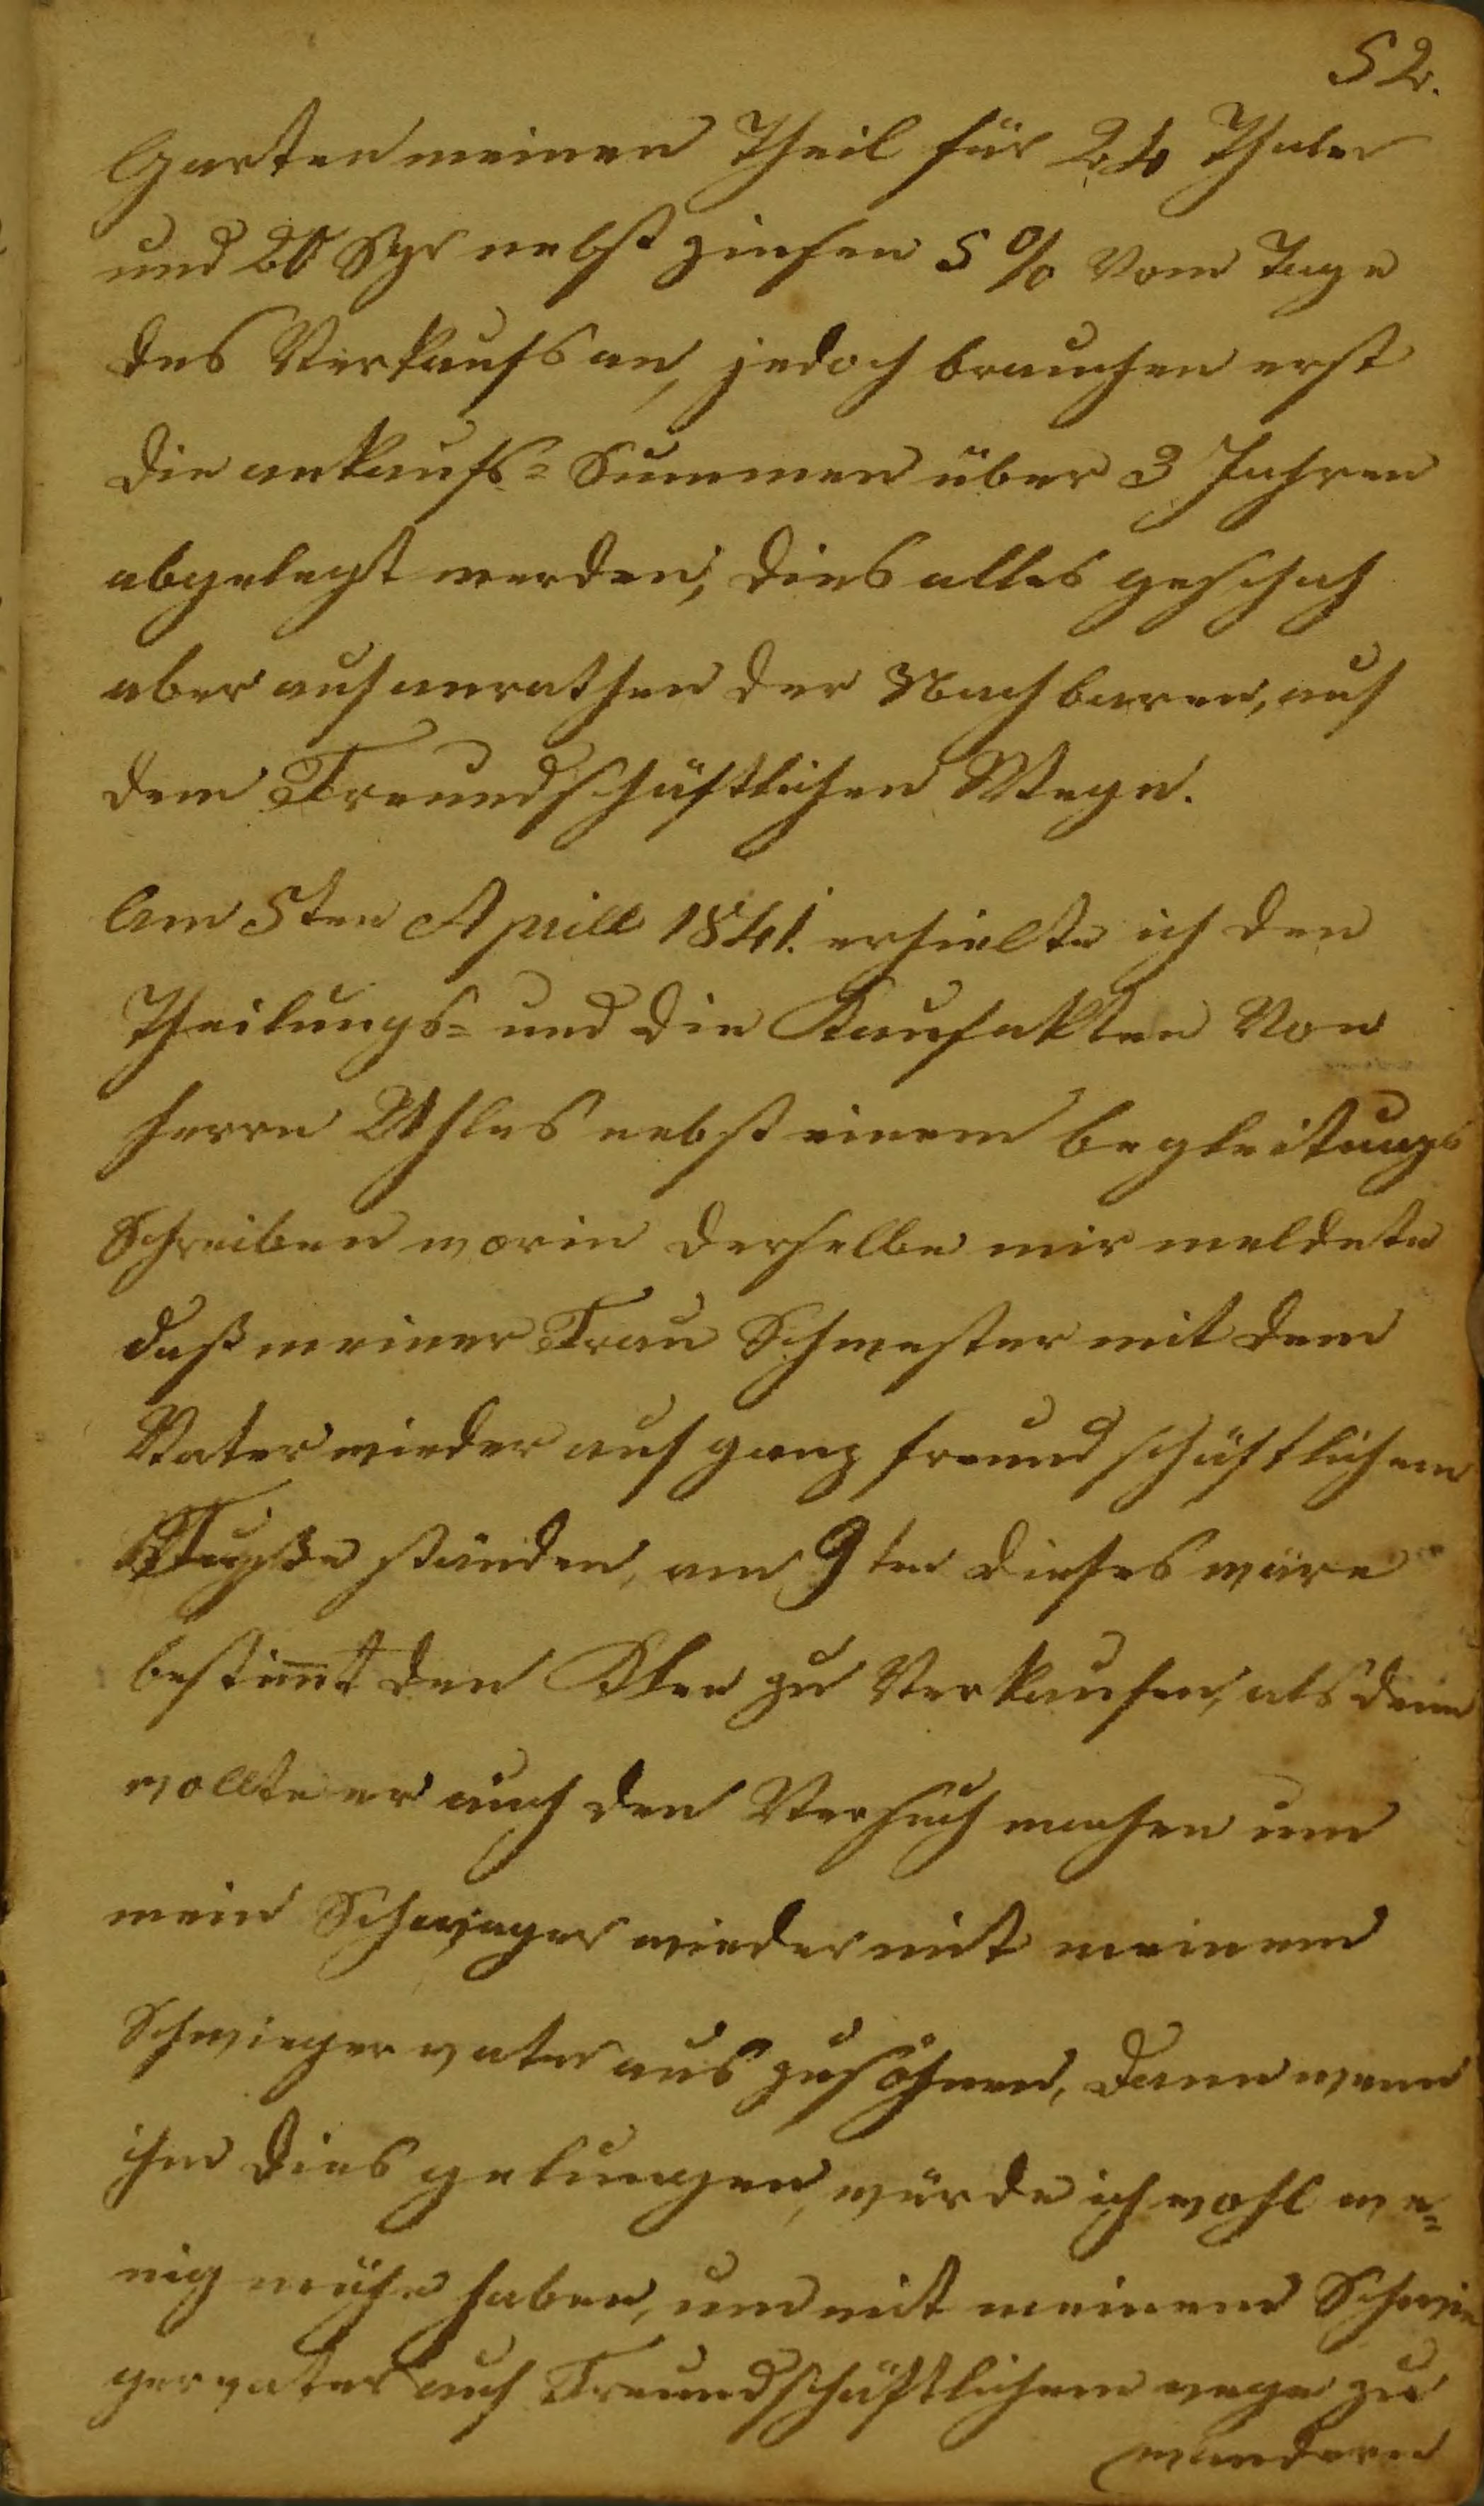 52.
Garten meinen Theil für 24 Thaler
und 20 Sgr nebst zinsen 5 % Vom Tage
des Verkaufs an, jedoch brauchen erst
die ankaufs= Summen über 3 Jahren
abgelegt werden, dies alles geschah
aber auf anrathen der Nachbaren, auf
dem Freundschäftlichen Wege.
Am 5ten Aprill 1841. erhielte ich den
Theilungs= und die Kaufakten Von
Herrn Uhles nebst einem begleitungs
Schreiben worin derselbe mir meldete
daß meiner Frau Schwester mit dem
Vater wieder auf ganz freundschäftlichem
Fuße ständen, am 9ten dieses wäre
bestim̅t den Klee zu Verkaufen, als dann
wollte er auch den Versuch machen um
mein Schwager wieder mit meinem
Schwiegervater aus zusöhnen, dann wenn
ihm dies gelungen, würde ich wohl we=
nig mühe haben, um mit meinem Schwie
gervater auf Freundschäftlichem wege zu
wandern